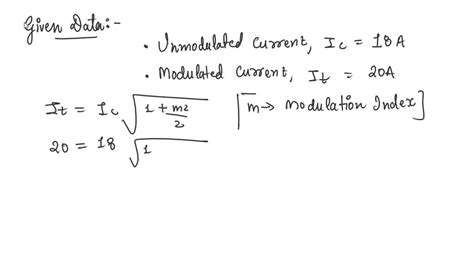 Given Data:-
• Unmodulated Current, Ic = 18A
• Modulated Current, It = 20A
It = Ic √(1 + m2/2) [m → Modulation Index]
20 = 18 √1